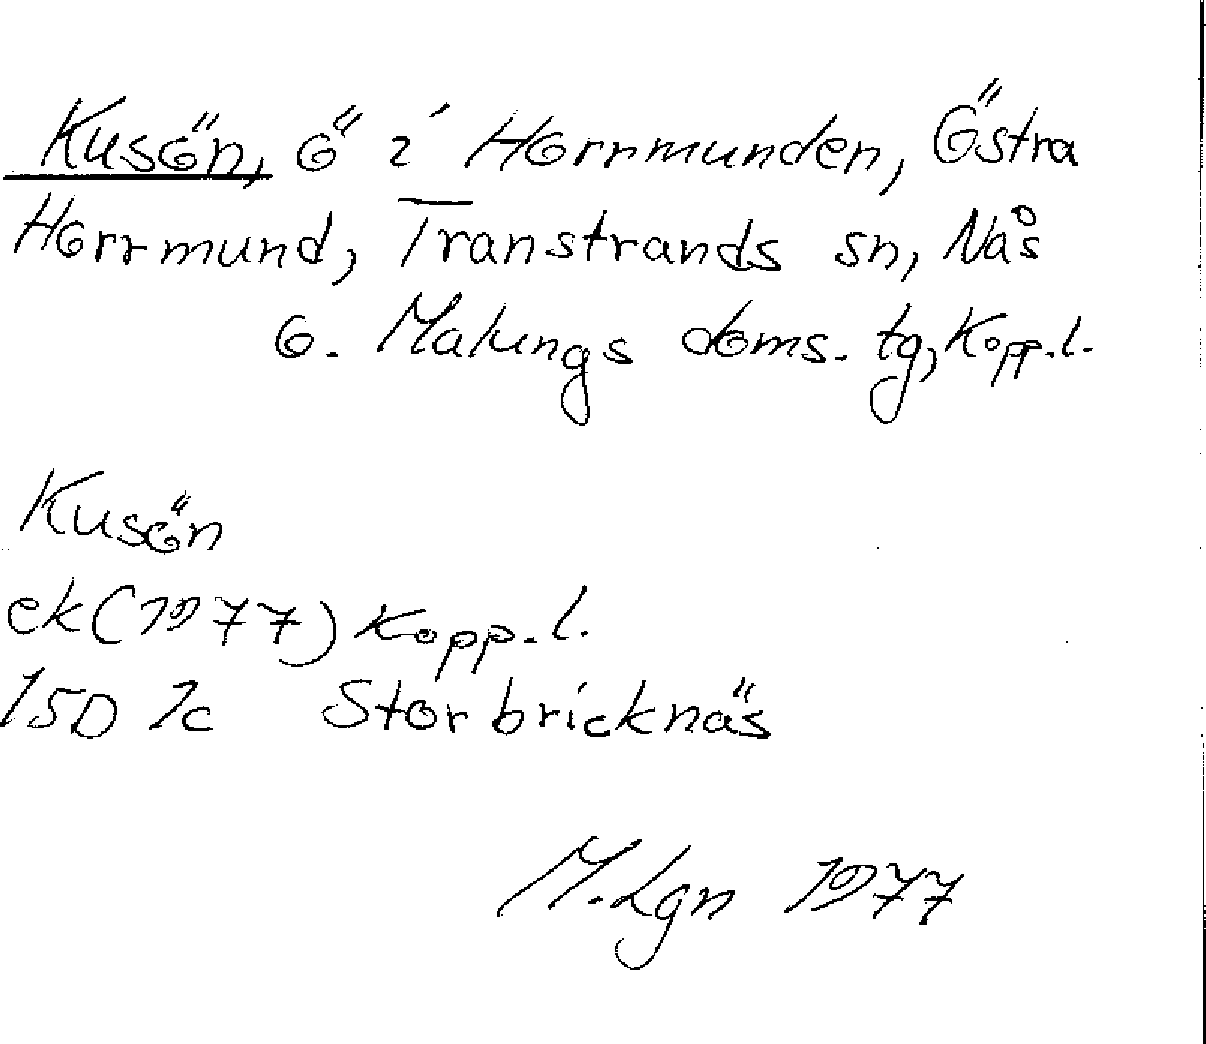 Kusön, ö i Horrmunden, Östra
Horrmund, Transtrands sn, Nås
o. Malungs doms. tg, Kopp.l.
Kusön
ek(1977) Kopp.l.
15D 1c Storbricknäs
M.Lgn 1977